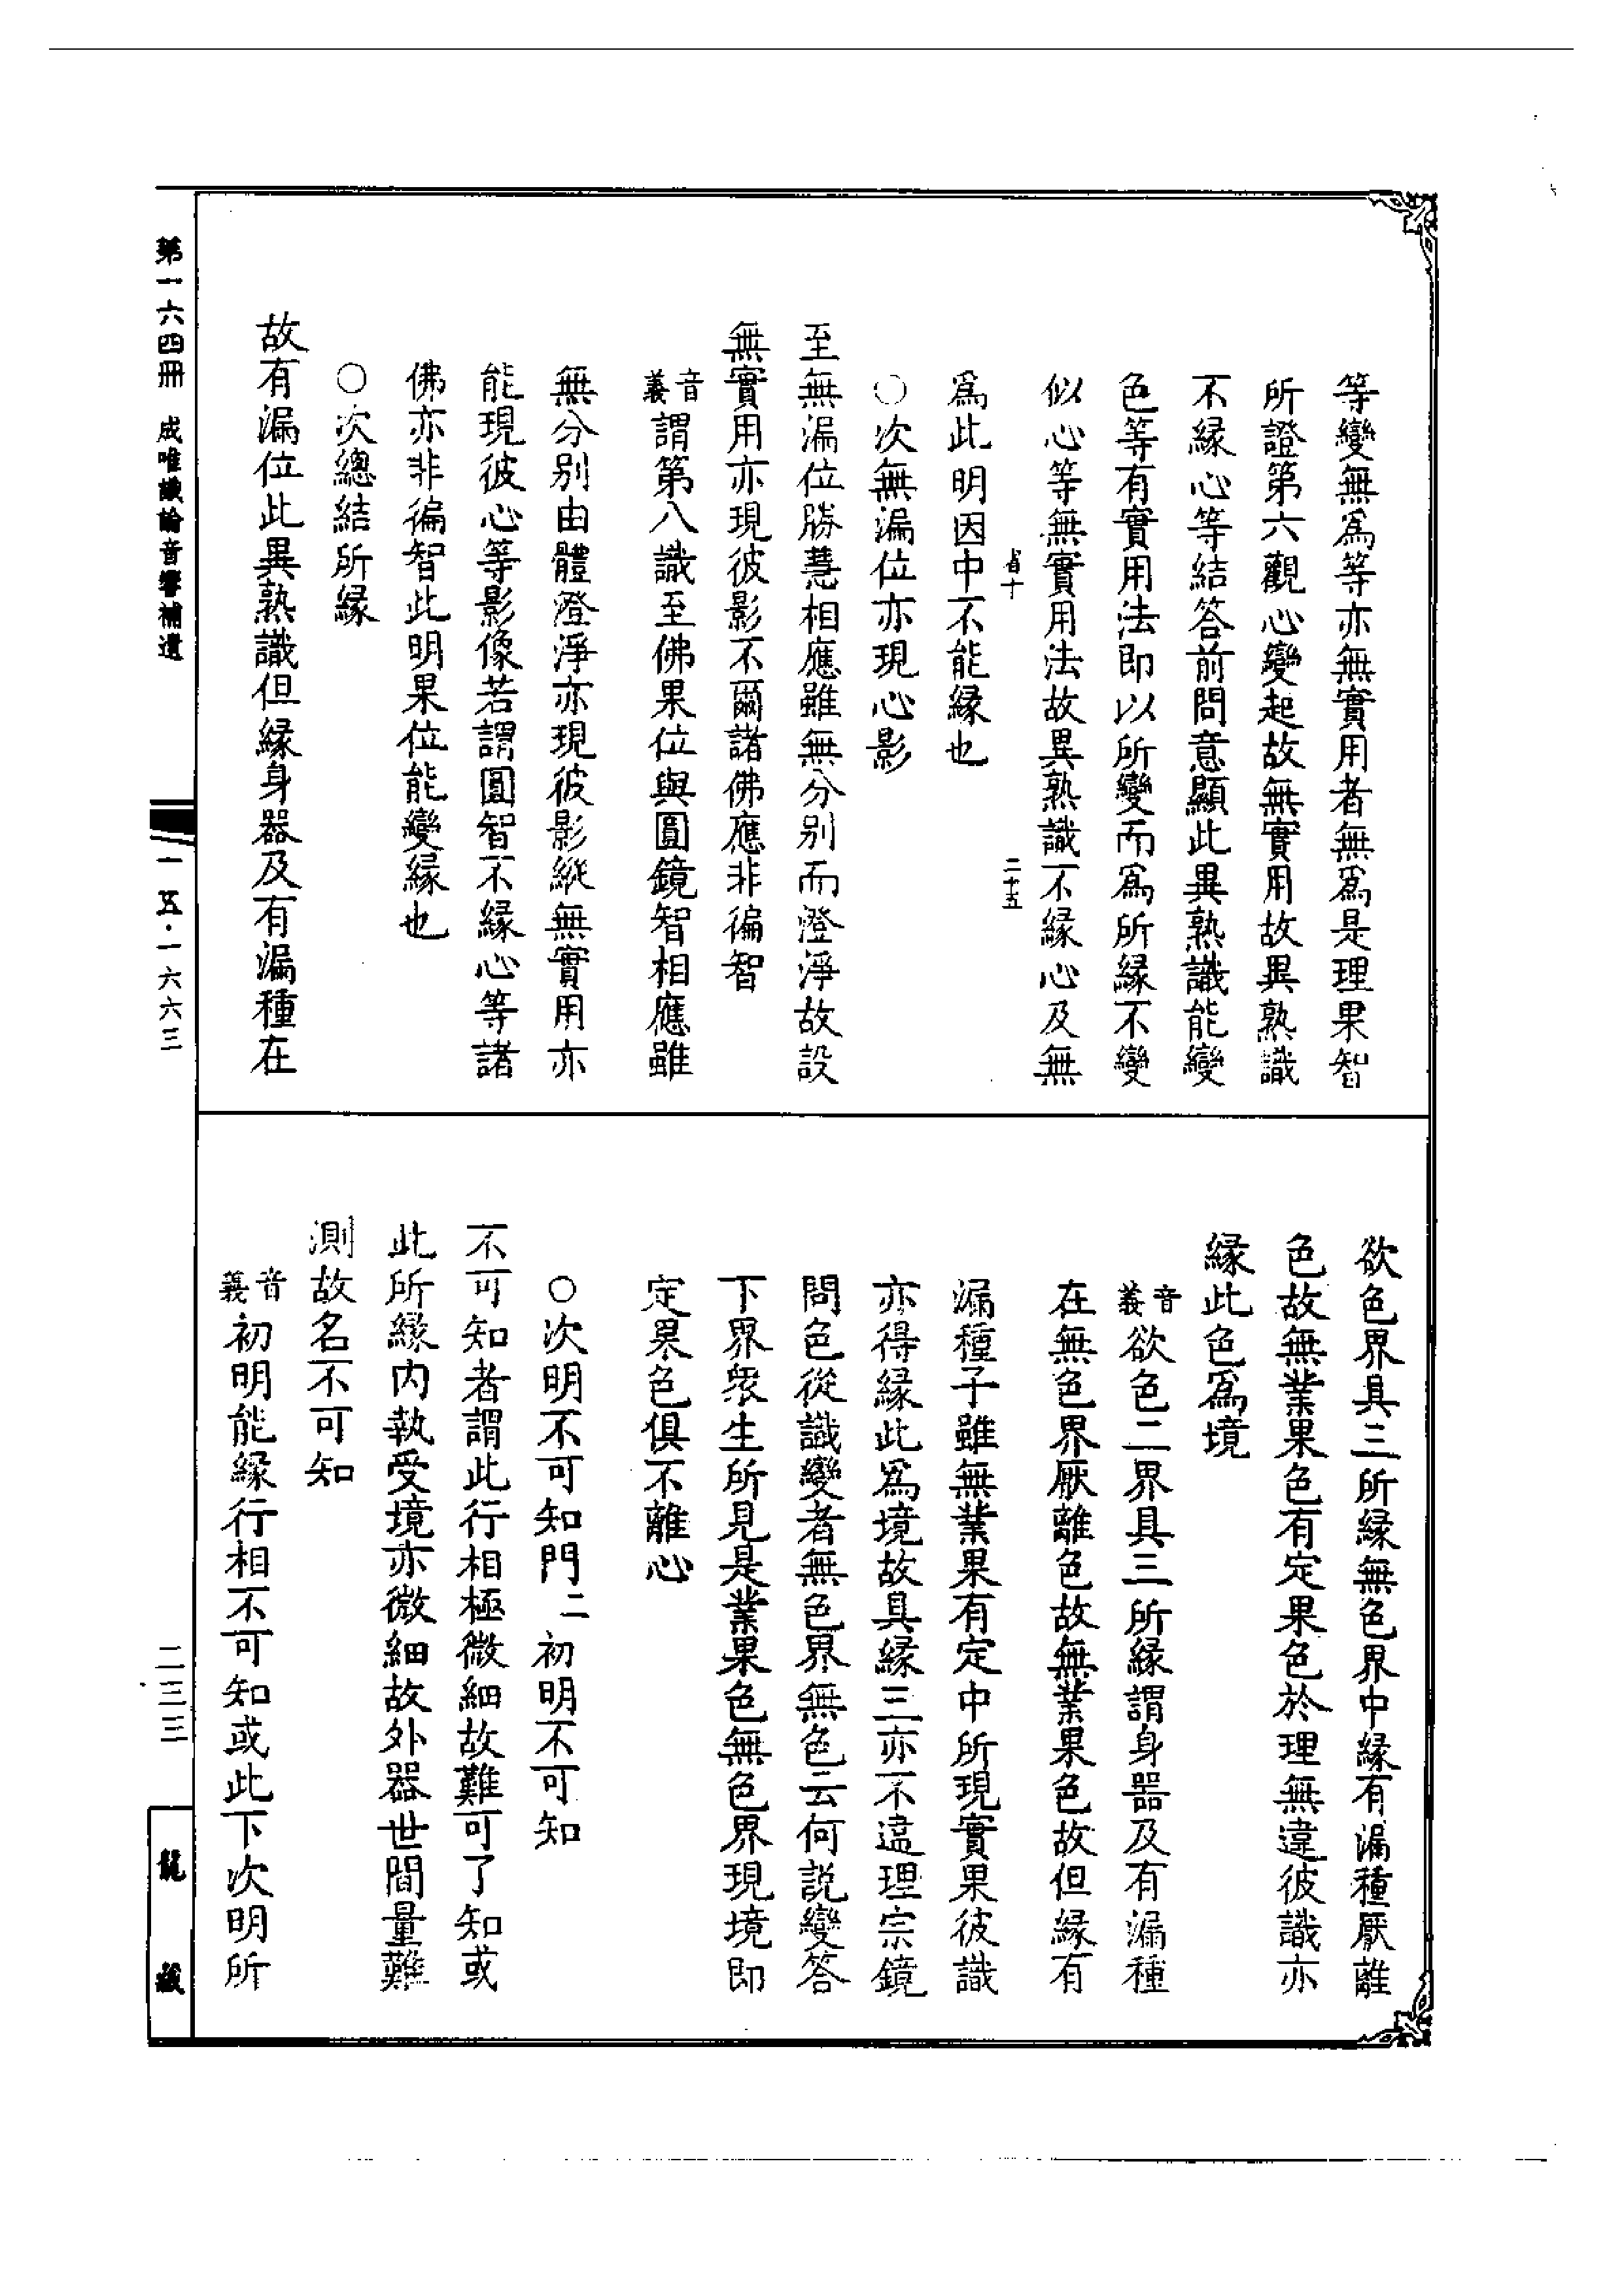 等變無爲等亦無實用者無爲是理果智
所證第六觀心變起故無實用故異熟識
不緣心等結答前問意顯此異熟識能變
色等有實用法即以所變而爲所緣不變
似心等無實用法故異熟識不緣心及無
省十
二十五
爲此明因中不能緣也
○次無漏位亦現心影
至無漏位勝慧相應雖無分别而澄淨故設
無實用亦現彼影不爾諸佛應非徧智
音義謂第八識至佛果位與圓鏡智相應雖
無分别由體澄淨亦現彼影縱無實用亦
能現彼心等影像若謂圓智不緣心等諸
佛亦非徧智此明果位能變緣也
○次總結所緣
故有漏位此異熟識但緣身器及有漏種在
欲色界具三所緣無色界中緣有漏種厭離
色故無業果色有定果色於理無違彼識亦
緣此色爲境
音義欲色二界具三所緣謂身器及有漏種
在無色界厭離色故無業果色故但緣有
漏種子雖無業果有定中所現實果彼識
亦得緣此爲境故具緣三亦不違理宗鏡
問色從識變者無色界無色云何說變答
下界衆生所見是業果色無色界現境即
定果色俱不離心
○次明不可知門二初明不可知
不可知者謂此行相極微細故難可了知或
此所緣内執受境亦微細故外器世間量難
測故名不可知
音義初明能緣行相不可知或此下次明所
第一六四冊 成唯識論音響補遺
一五·一六六三
二三三
龍藏